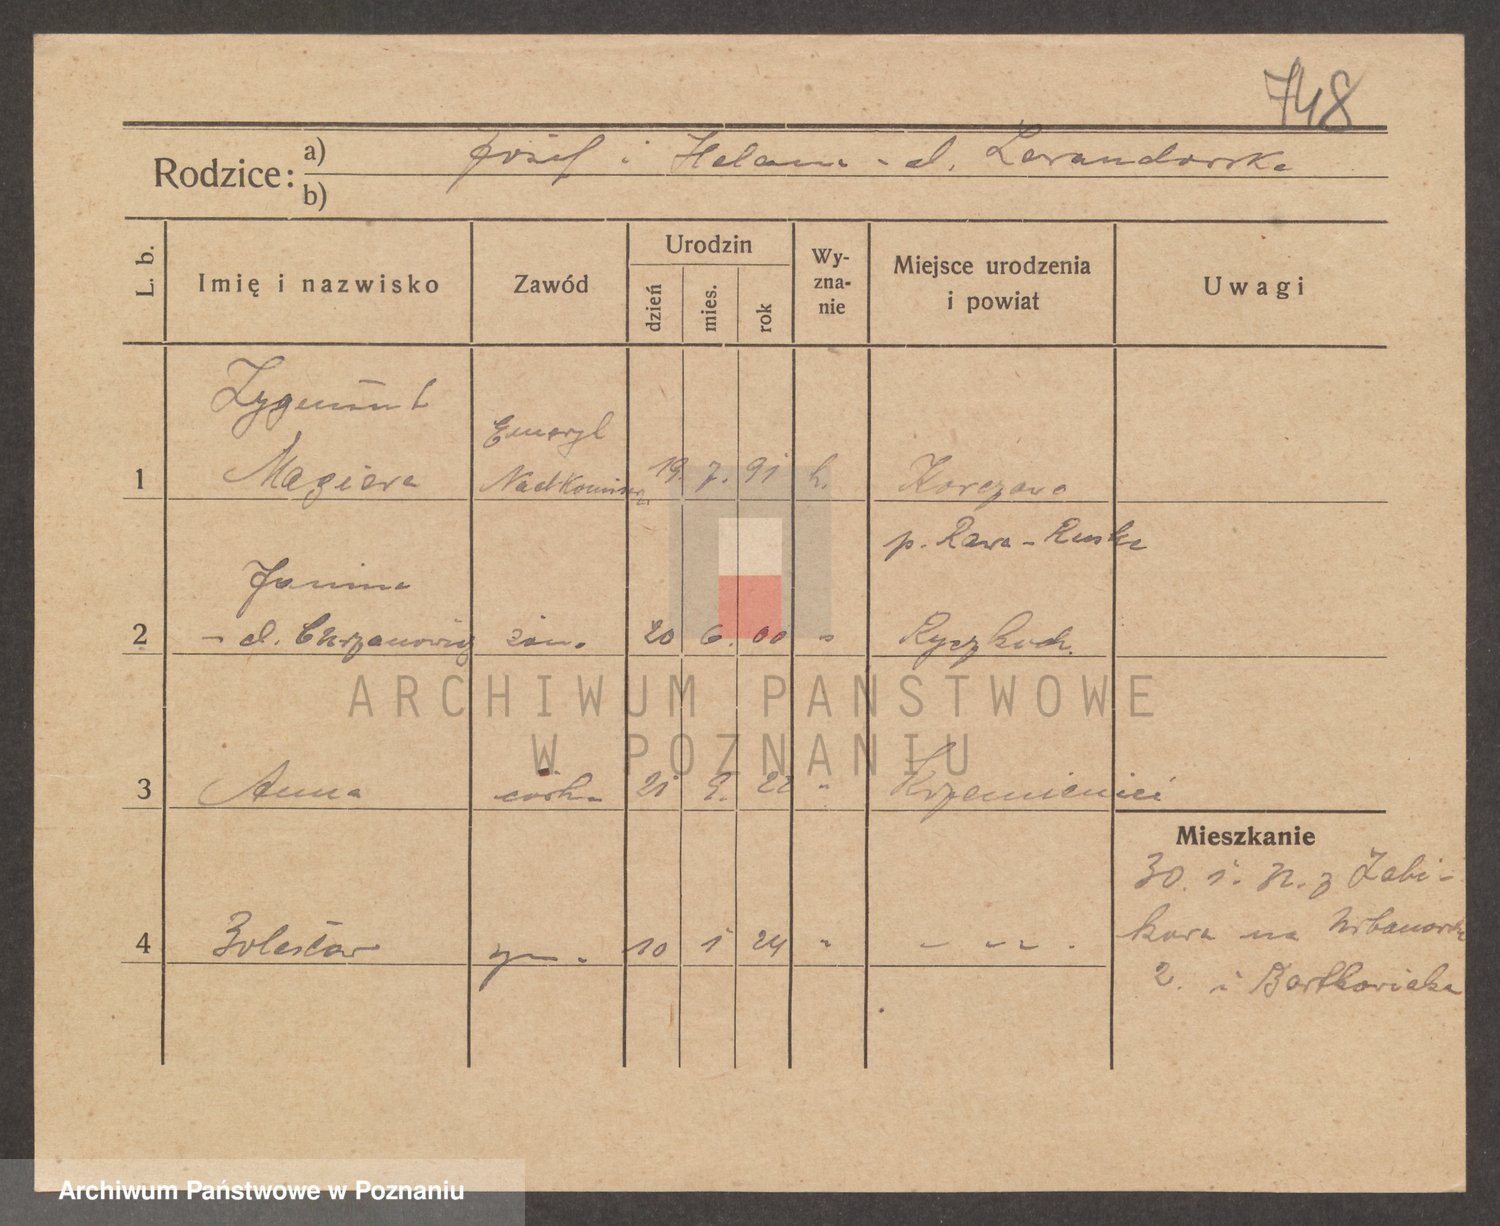 748
Rodzice:
a) Józef i Helena - d. Lewandowska
b)
L. b.
Imię i nazwisko
Zawód
Urodzin
dzień
mies.
rok
Wy-
zna-
nie
Miejsce urodzenia
i powiat
Uwagi
Zygmunt
Emeryt
1 Magiera Nadkomisarz 19. 7. 91 k. Korczowa
p. Rawa-Ruska
Janina
2 - d. Chrzanowicz żon. 20 6. 00 "
3 Anna córka 21 9. 22 " Krzemieniec
Mieszkanie
30. 1. 
4 Bolesław syn. 10 1 24 " - " - .
kowa na Urbanowska
2. i Bartkowiaka
ARCHIWUM PAŃSTWOWE
W POZNANIU
Archiwum Państwowe w Poznaniu